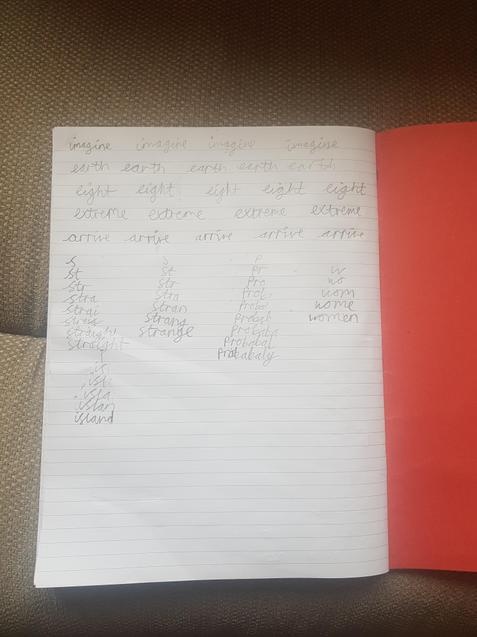 imagine imagine imagine imagine
earth earth earth earth earth
eight eight eight eight eight
extreme extreme extreme extreme
arrive arrive arrive arrive arrive
s s p
st st pr w
str str pro wo
stra stra prob wom
strai stran proba wome
strang probab women
straigh strange probaba
straight probabal
i probabaly
is
isl
isla
islan
island